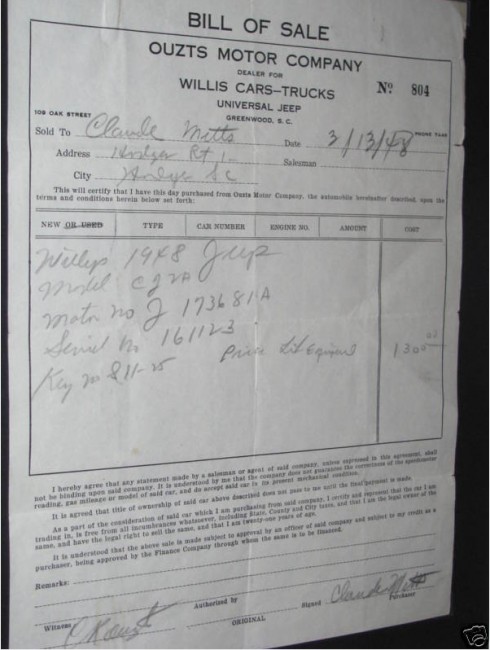 BILL OF SALE
OUZTS MOTOR COMPANY
DEALER FOR
WILLIS CARS—TRUCKS
UNIVERSAL JEEP
GREENWOOD, S. C.
No. 804
109 OAK STREET
PHONE
Sold To Claude Mitts Date 3/13/48
Address Hodges Rt 1 Salesman
City Hodges SC
This will certify that I have this day purchased from Ouzts Motor Company, the automobile hereinafter described, upon the
terms and conditions herein below set forth:
NEW OR USED TYPE CAR NUMBER ENGINE NO. AMOUNT COST
Willys 1948 Jeep
Model CJ2A
Motor no J 173681A
Serial no 161123
Key no 811-25 Price 1300
I hereby agree that any statement made by a salesman or agent of said company, unless expressed in this agreement, shall
not be binding upon said company. It is understood by me that the company does not guarantee the correctness of the speedometer
reading, gas mileage or model of said car, and do accept said car in its present mechanical condition.
It is agreed that title of ownership of said car above described does not pass to me until the final payment is made.
As a part of the consideration of said car which I am purchasing from said company, I certify and represent that the car I am
trading in, is free from all incumbrances whatsoever, including State, County and City taxes, and that I am the legal owner of the
same, and have the legal right to sell the same, and that I am twenty-one years of age.
It is understood that the above sale is made subject to approval by an officer of said company and subject to my credit as a
purchaser, being approved by the Finance Company through whom the same is to be financed.
Remarks:
Witness Authorized by Signed Claude Mitts
Purchaser
ORIGINAL